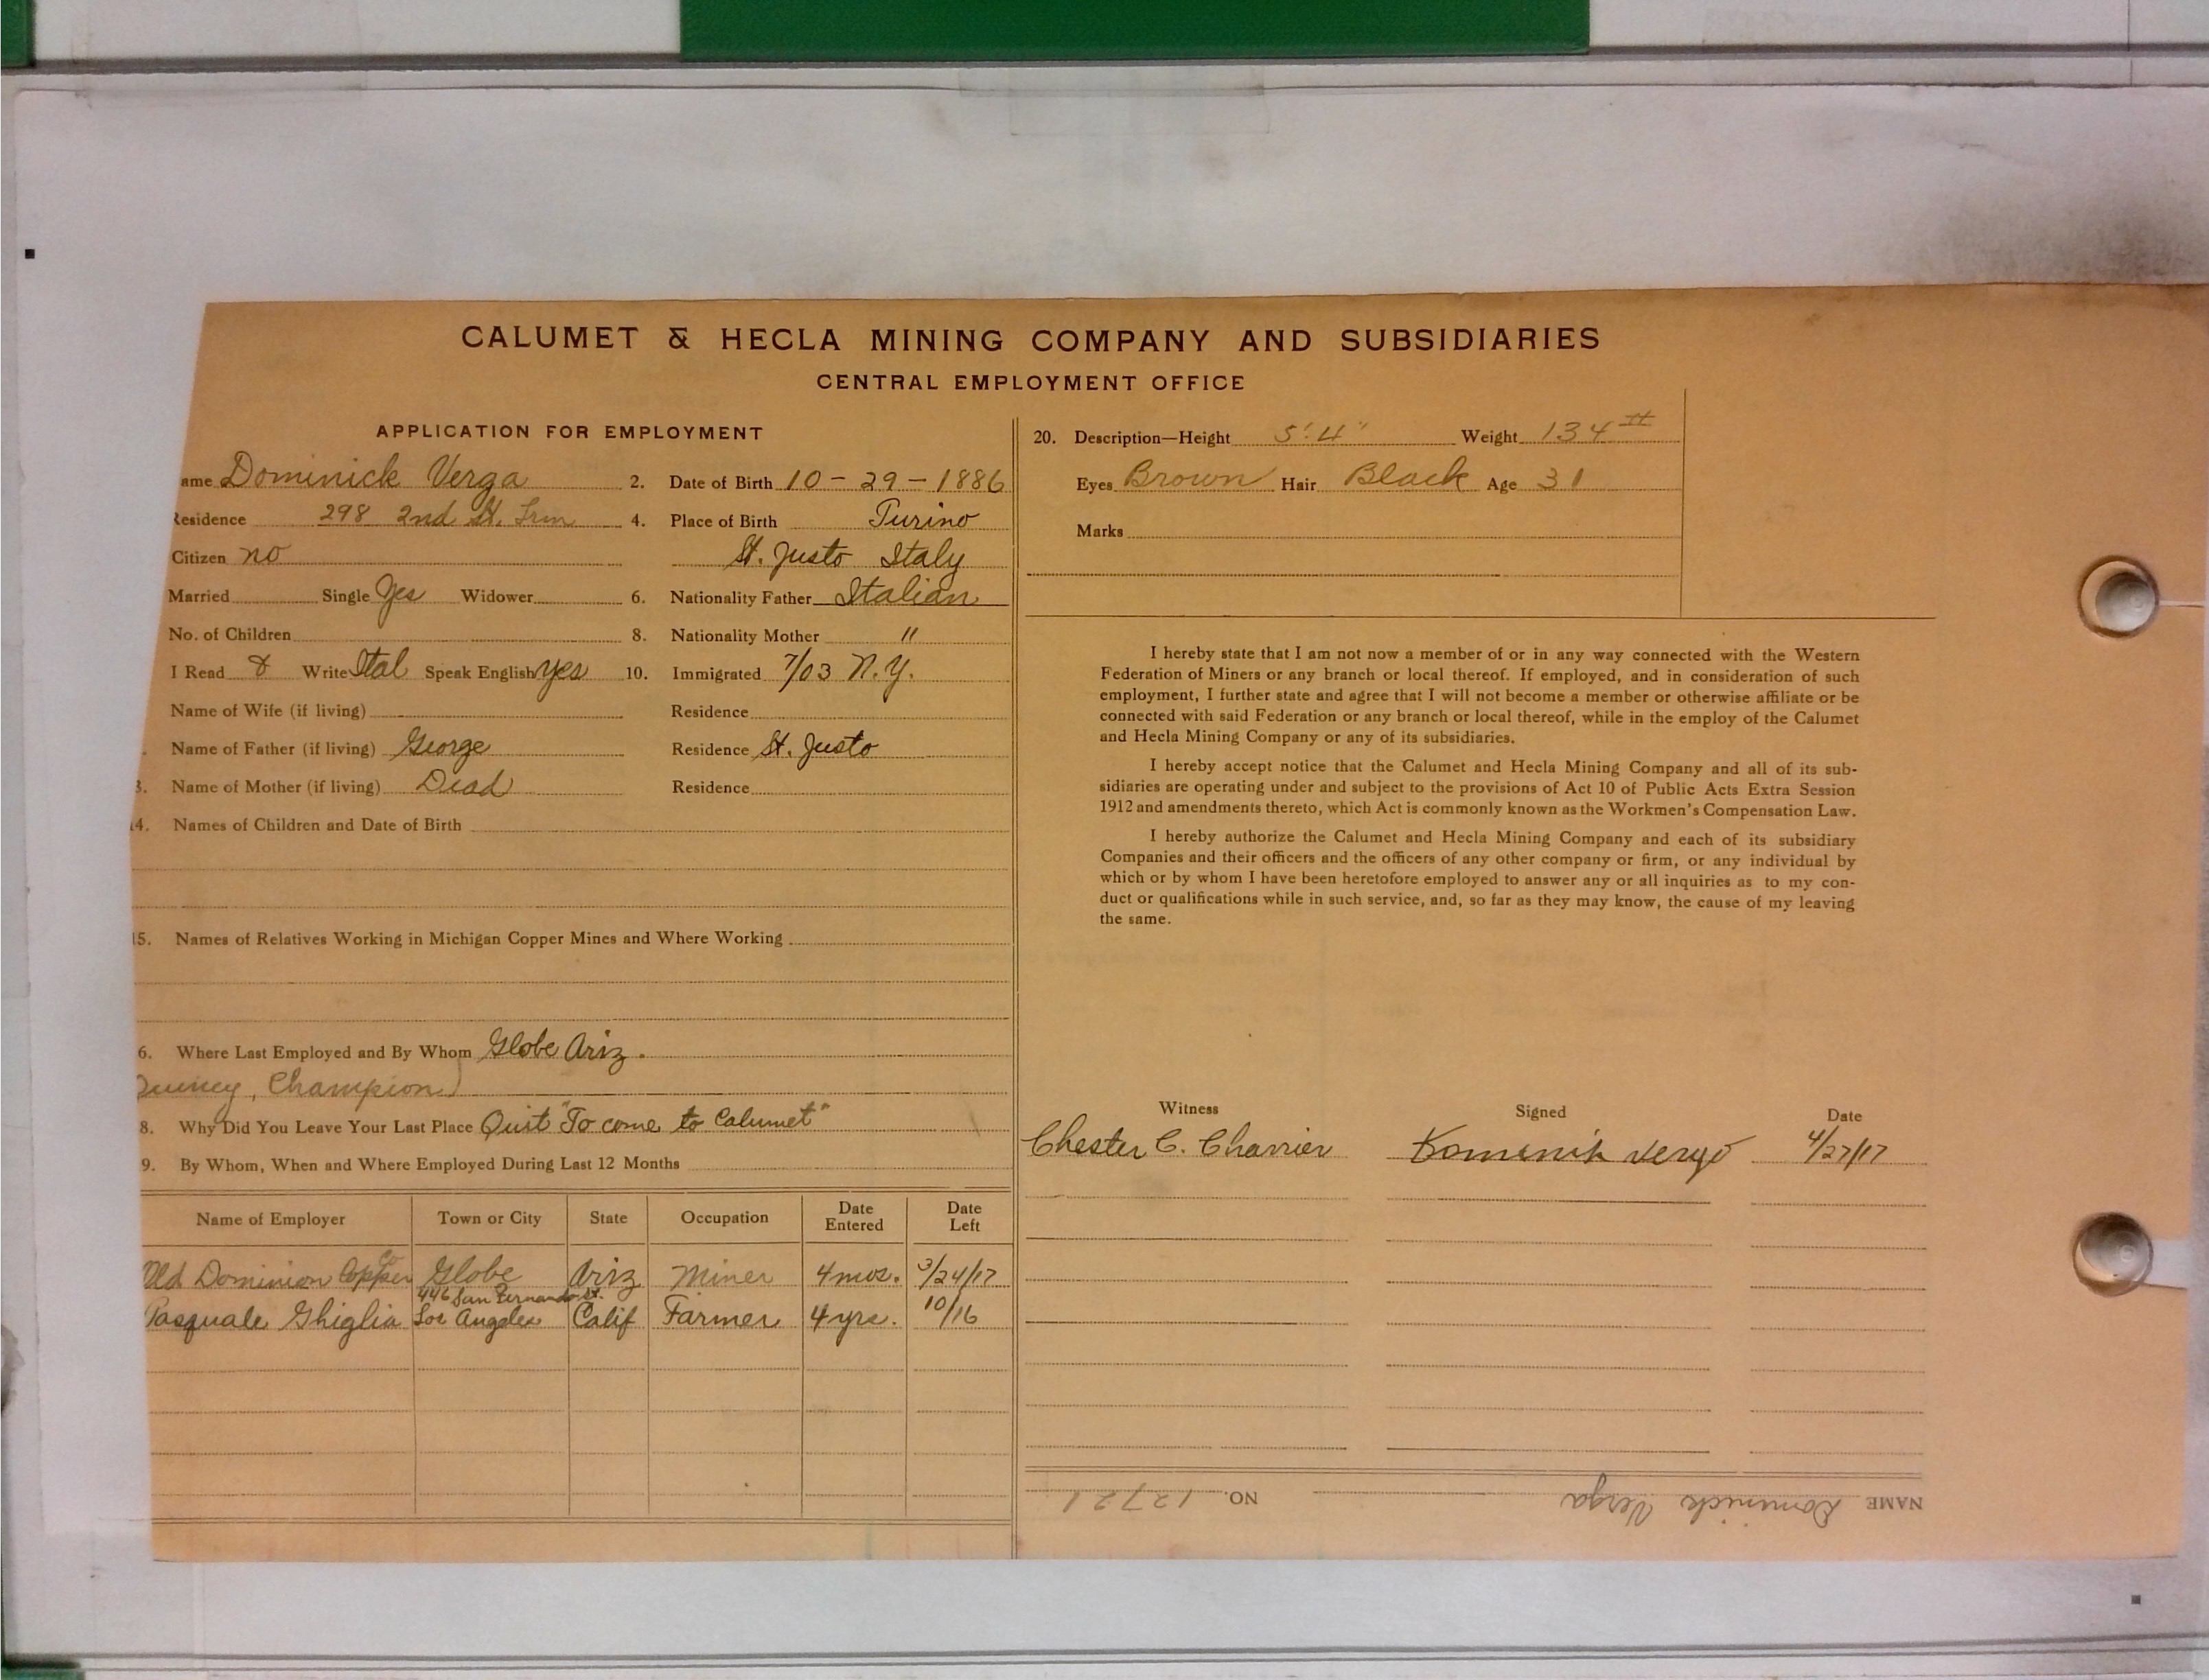 CALUMET & HECLA MINING COMPANY AND SUBSIDIARIES
CENTRAL EMPLOYMENT OFFICE
APPLICATION FOR EMPLOYMENT
ame Dominick Verga 2. Date of Birth 10-29-1886
Residence 298 2nd St. 4. Place of Birth Turino
Citizen no St. Justo Italy
Married Single Yes Widower 6. Nationality Father Italian
No. of Children 8. Nationality Mother "
I Read & Write Ital Speak English yes 10. Immigrated 7/03 N.Y.
Name of Wife (if living) Residence
Name of Father (if living) George Residence St. Justo
3. Name of Mother (if living) Dead Residence
14. Names of Children and Date of Birth
15. Names of Relatives Working in Michigan Copper Mines and Where Working
6. Where Last Employed and By Whom Globe Ariz.
Quincy, Champion)
8. Why Did You Leave Your Last Place Quit "To come to Calumet"
9. By Whom, When and Where Employed During Last 12 Months
Name of Employer Town or City State Occupation Date Entered Date Left
Old Dominion Copper Co Globe Ariz Miner 4 mos. 3/24/17
446 San Fernando St.
Pasquale Ghiglia Los Angeles Calif Farmer 4 yrs. 10/16
20. Description—Height 5'4" Weight 134 #
Eyes Brown Hair Black Age 31
Marks
I hereby state that I am not now a member of or in any way connected with the Western
Federation of Miners or any branch or local thereof. If employed, and in consideration of such
employment, I further state and agree that I will not become a member or otherwise affiliate or be
connected with said Federation or any branch or local thereof, while in the employ of the Calumet
and Hecla Mining Company or any of its subsidiaries.
I hereby accept notice that the Calumet and Hecla Mining Company and all of its sub-
sidiaries are operating under and subject to the provisions of Act 10 of Public Acts Extra Session
1912 and amendments thereto, which Act is commonly known as the Workmen's Compensation Law.
I hereby authorize the Calumet and Hecla Mining Company and each of its subsidiary
Companies and their officers and the officers of any other company or firm, or any individual by
which or by whom I have been heretofore employed to answer any or all inquiries as to my con-
duct or qualifications while in such service, and, so far as they may know, the cause of my leaving
the same.
Witness Signed Date
Chester C. Charrier Domenik Vergo 4/27/17
NAME Dominick Verga NO. 12721